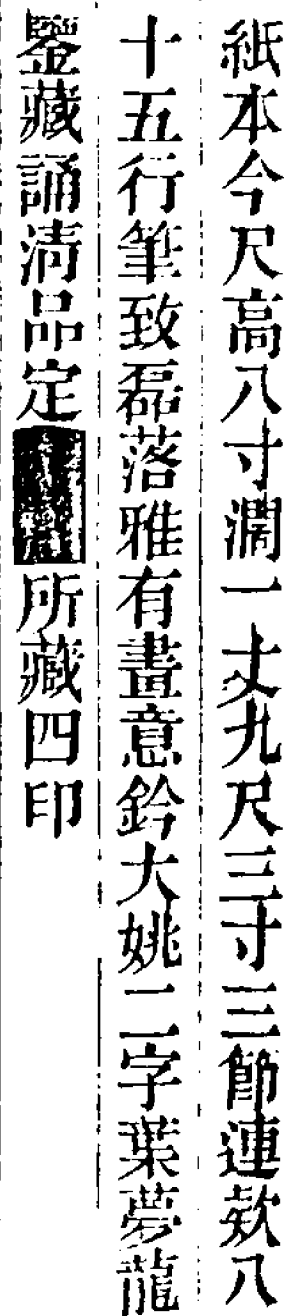 紙本今尺高八寸濶一丈九尺三寸三節連欵八
十五行筆致磊落雅有畫意鈐大姚二字葉夢龍
鑒藏誦清品定所藏四印